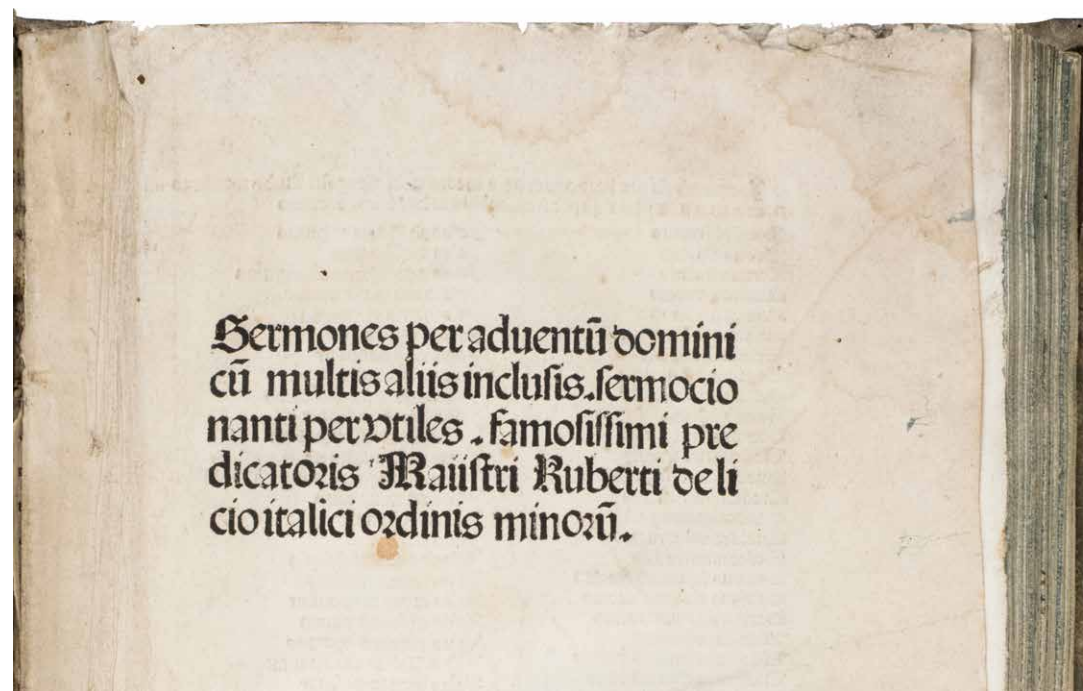 Sermones per aduentū domini
cū multis aliis inclusis.sermocio
nanti per vtiles . famosissimi pre
dicatoris Maiistri Ruberti de li
cio italici ordinis minorū.